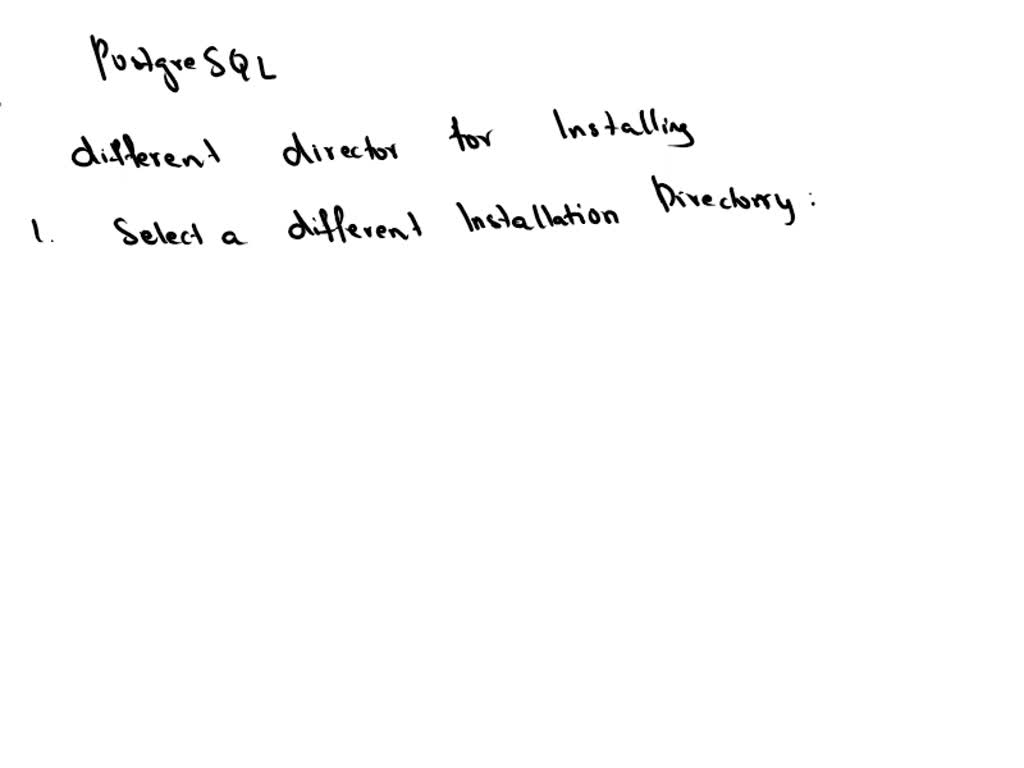 PostgreSQL
different director for Installing
1. Select a different Installation Directorry: